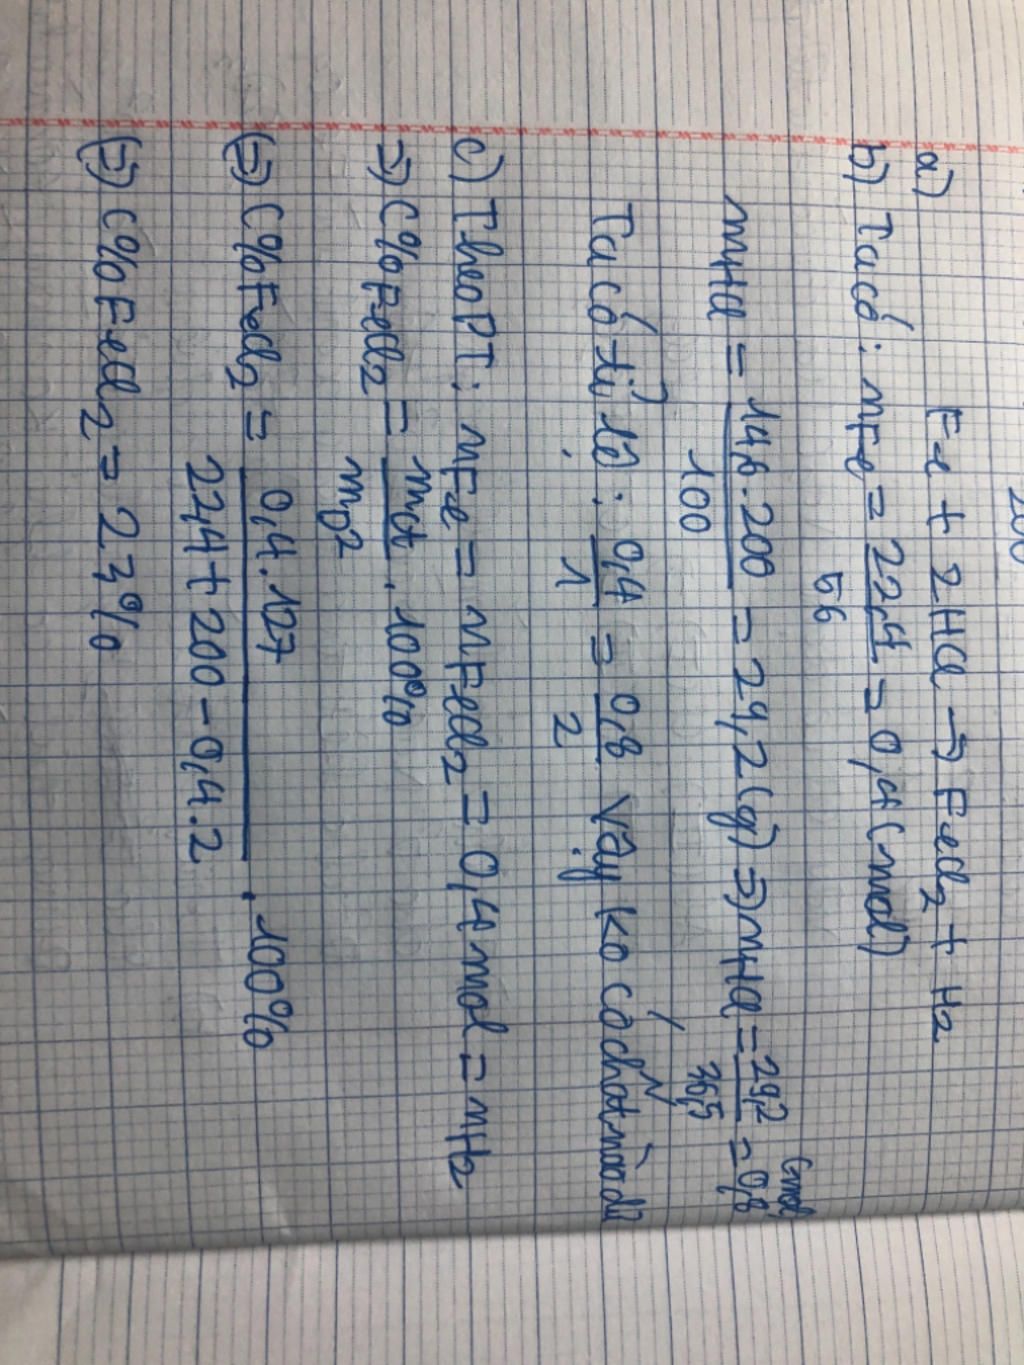 200
a) Fe + 2HCl → FeCl2 + H2
b) Ta có: nFe = 22,4 / 56 = 0,4 (mol)
mHCl = 14,6.200 / 100 = 29,2 (g) ⇒ nHCl = 29,2 / 36,5 = 0,8 (mol)
Ta có tỉ lệ: 0,4 / 1 = 0,8 / 2 Vậy ko có chất nào dư
c) Theo PT: nFe = nFeCl2 = 0,4 mol = nH2
⇒ C%FeCl2 = mct / mp2 . 100%
⇔ C%FeCl2 = 0,4.127 / 22,4 + 200 - 0,4.2 . 100%
⇔ C%FeCl2 = 23%